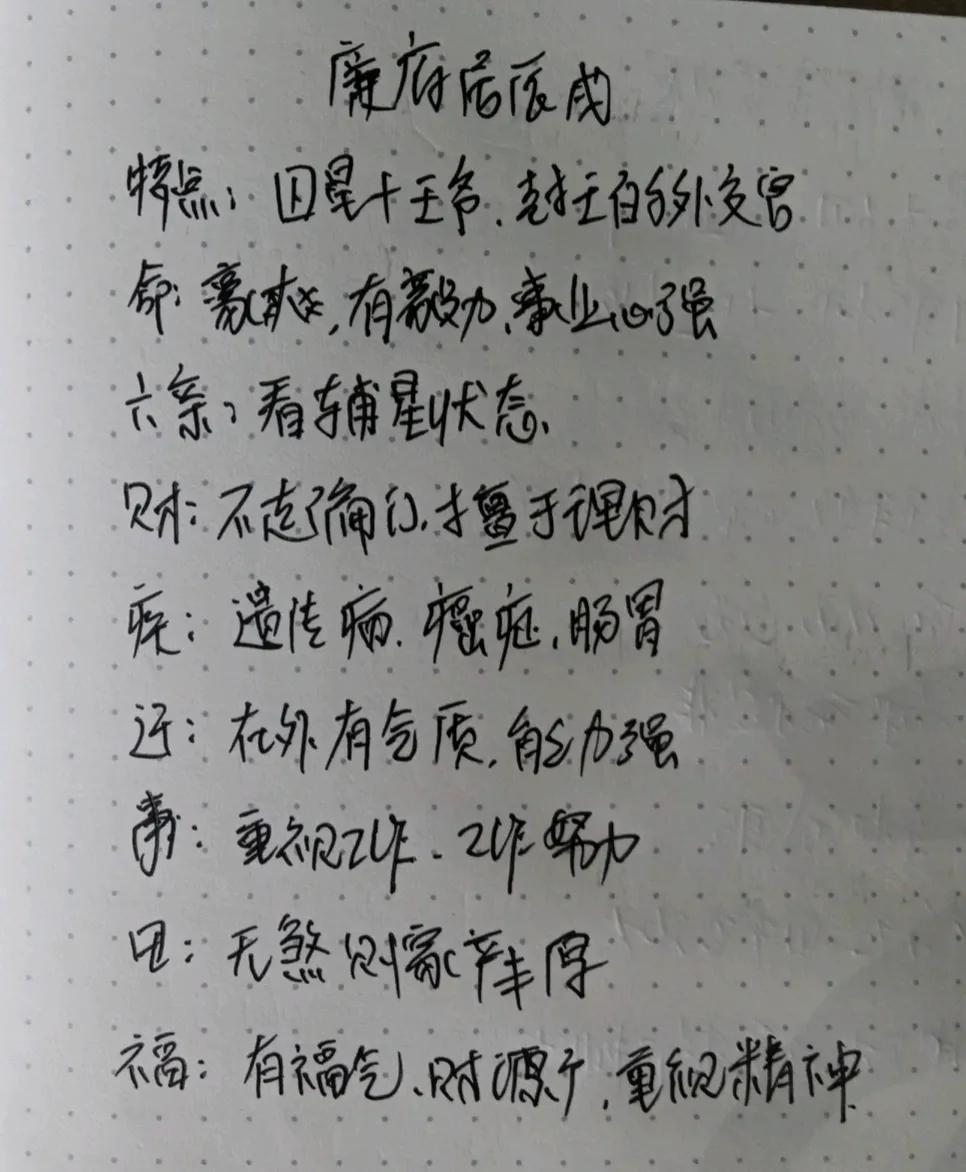 廉府居辰戌
特点：囚星十王爷、赵王白的外交官
命：豪爽，有魅力、事业心强
六亲：看辅星状态、
财：不走偏门、才擅于理财
疾：遗传病、癌症、肠胃
迁：在外有气质，能力强
事：重视工作、工作努力
田：无煞则家产丰厚
福：有福气、财源广，重视精神